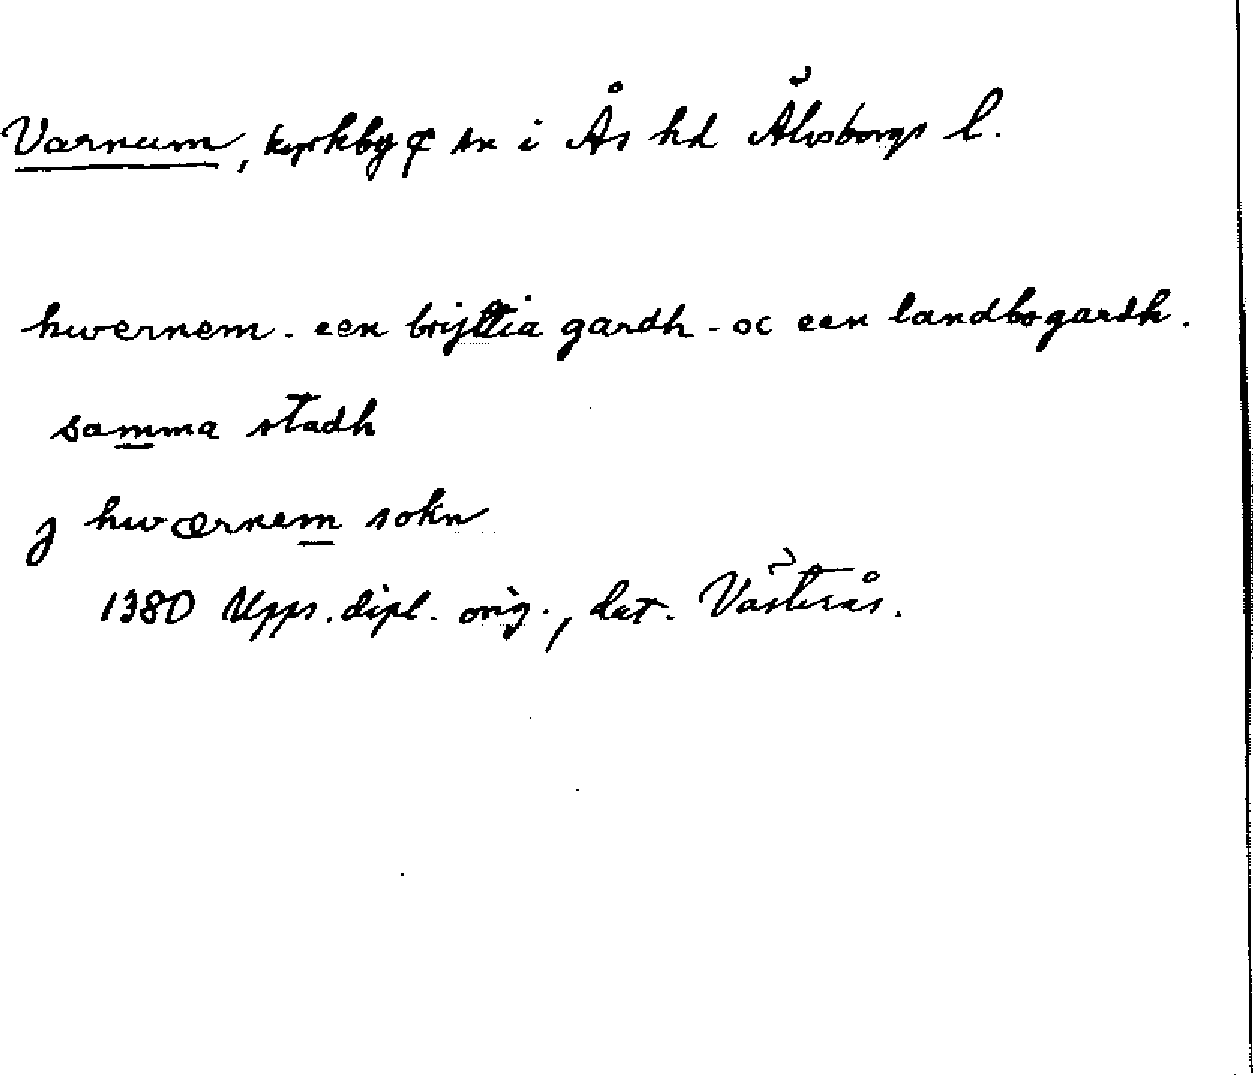 Varnum, kyrkby o sn i Ås hd Älvsborgs l.
hwernem. een brijttia gardh. oc een landbogardh.
samma stadh
j hwærnem sokn
1380 Upps. dipl. orig., dat. Västerås.